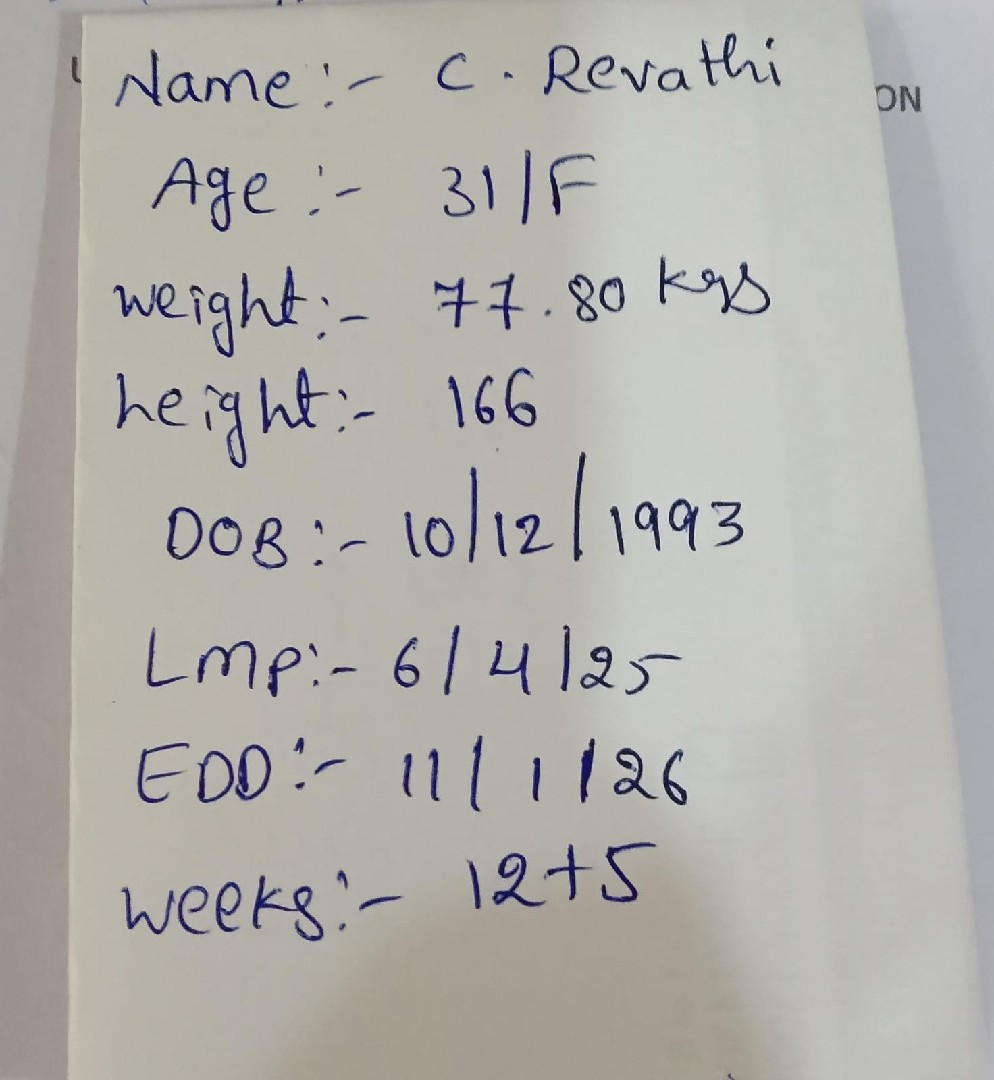 Name:- C. Revathi
ON
Age:- 31/F
weight:- 77.80 kgs
height:- 166
DOB:- 10/12/1993
Lmp:- 6/4/25
EDD:- 11/1/26
weeks:- 12+5